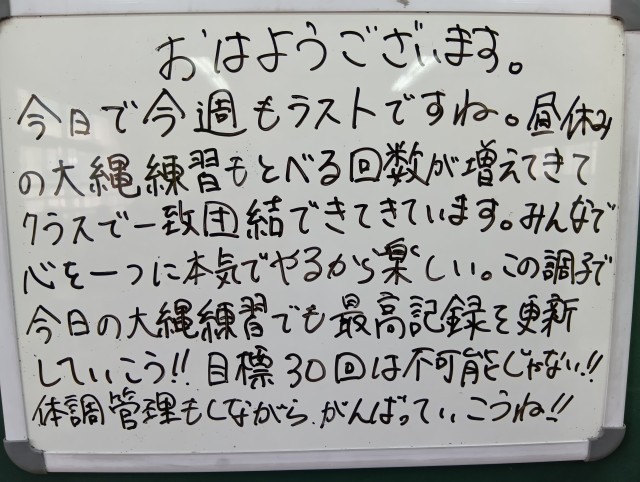 おはようございます。
今日で今週もラストですね。昼休み
の大縄練習もとべる回数が増えてきて
クラスで一致団結できてきています。みんなで
心を一つに本気でやるから楽しい。この調子で
今日の大縄練習でも最高記録を更新
していこう!! 目標30回は不可能じゃない!!
体調管理もしながら、がんばっていこうね!!